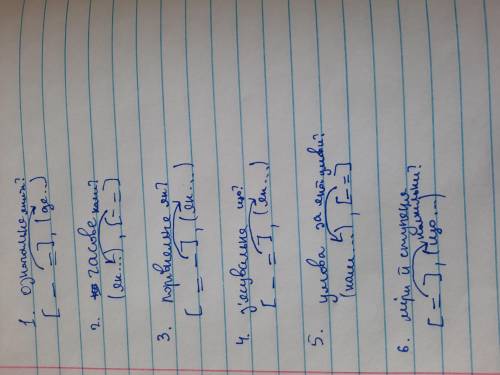 1. означальне яких?
[ — = ], (де...)
2. часове коли?
(як...), [ — = ]
3. порівняльне як?
[ = — ], (як...)
4. з'ясувальне що?
[ — = ], (як...)
5. умова за якої умови?
(коли...), [ — = ]
6. міри й ступеня наскільки?
[ — = ], (що...)